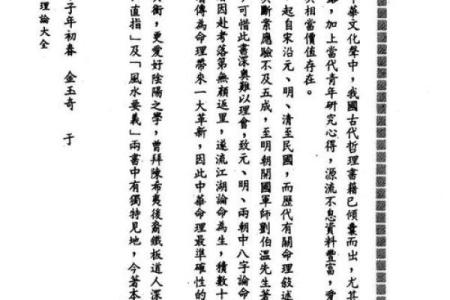 華文化聲中,我國古代哲理書籍已傾囊而出,尤其
,加上當代青年研究心得,源流不息資料豐富,愛
相當價值存在。
起自宋沿元、明、清至民國,而歷代有關命理敘述
斷案應驗不及五成,至明朝開國軍師劉伯溫先生著
,可惜此書深奧難以理會,致元、明、兩朝中八字論命
因赴考落第無顏返里,遂流江湖論命為生,積數十
傳為命理帶來一大革新,因此中華命理最準確性的
衡,更愛好陰陽之學,曾拜陳希夷後裔鐵板道人深
直指」及「風水要義」兩書中有獨特見地,今著本
子年初春 金玉奇 于
理論大全